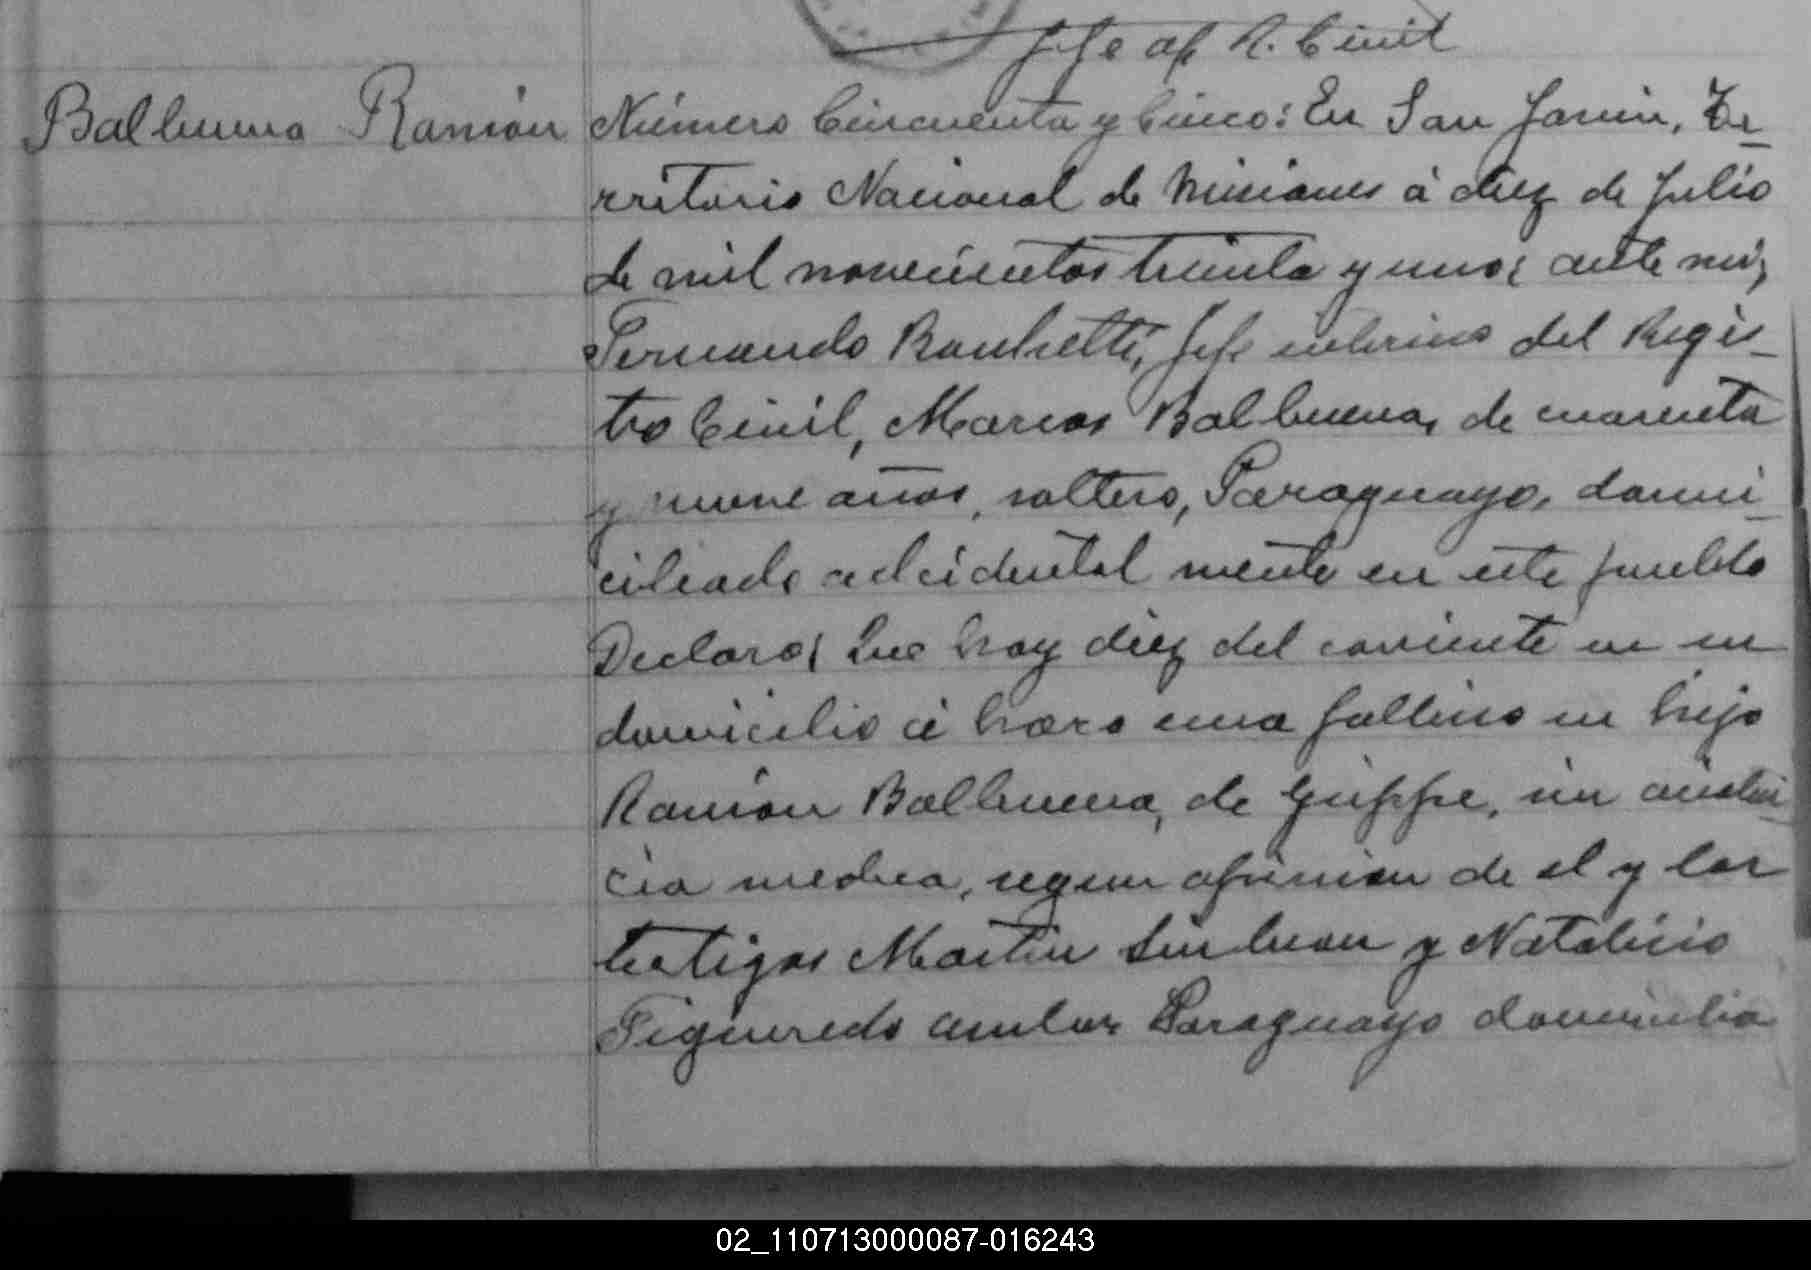 Jefe of R. Civil
Balbuena Ramón
Número Cincuenta y Cinco: En San Javier, Te-
rritorio Nacional de Misiones á diez de Julio
de mil novecientos treinta y uno; ante mi,
Fernando Jefe interino del Regis-
tro Civil, Marcos Balbuena, de cuarenta
y nueve años, soltero, Paraguayo, domi-
ciliado adcidental mente en este pueblo
Declaro; Que hoy diez del corriente en su
domicilio á hora una fallecio su hijo
Ramón Balbuena, de grippe, sin asisten-
cia medica, segun opinion de el y los
testigos Martin y Natalicio
Figueredo ambos Paraguayo domicilia
02_110713000087-016243